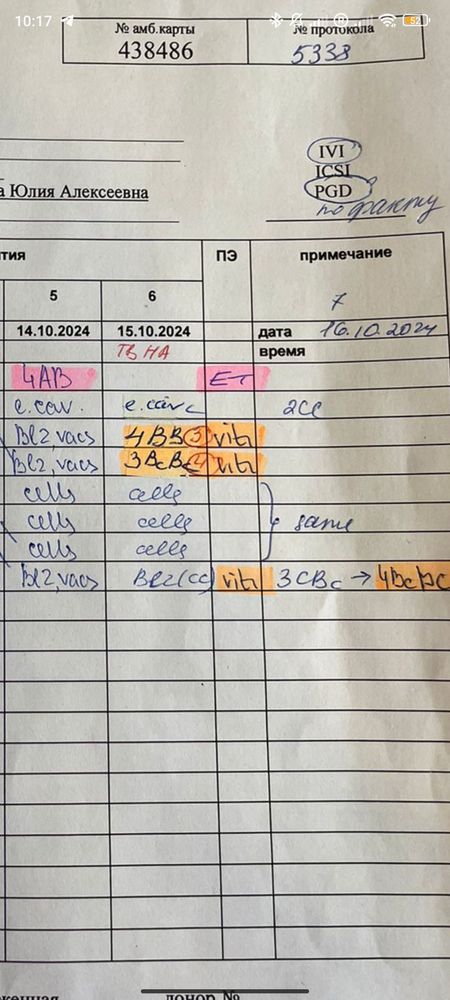 10:17
52
№ амб.карты № протокола
438486 5338
IVI
ICSI
PGD
а Юлия Алексеевна
по факту
тия ПЭ примечание
5 6 7
14.10.2024 15.10.2024 дата 16.10.2024
время
4AB ET
e.cav. e.cav 2CC
Bl2, vacs 4BB 3 vitr
Bl2, vacs 3BcBc vitr
cells cells
cells cells same
cells cells
Bl2, vacs Bl2(cc) vitr 3CBc → 4BcBc
женная донор №